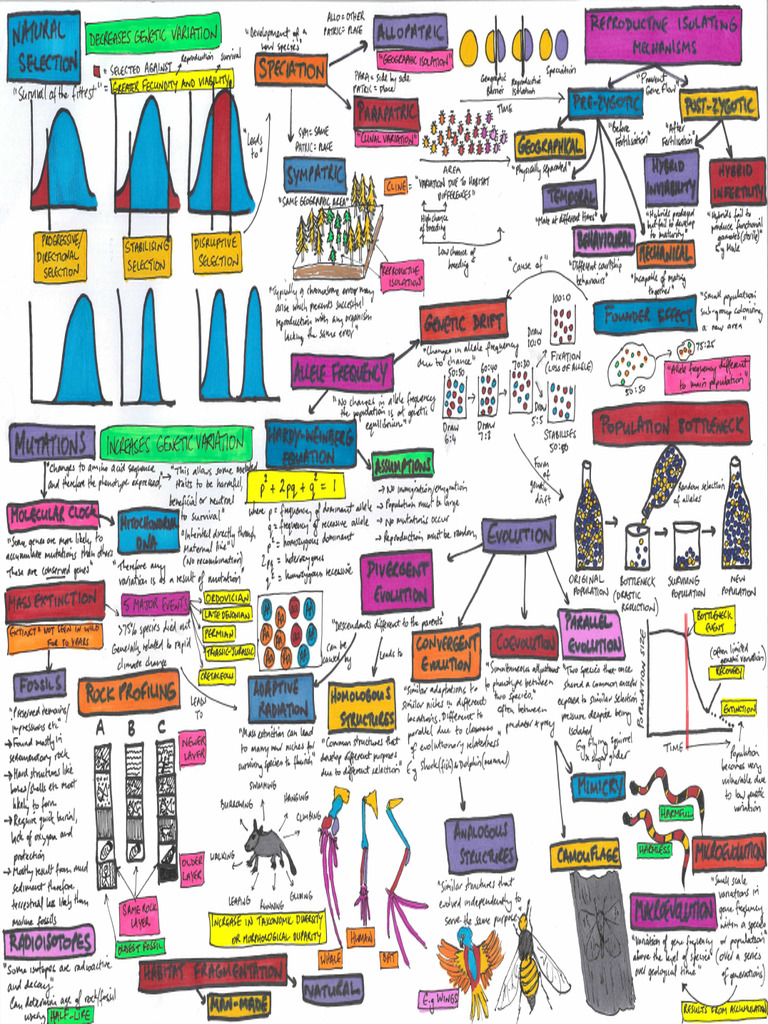 NATURAL
SELECTION
DECREASES GENETIC VARIATION
= SELECTED AGAINST
reproduction survival
"Survival of the fittest" = GREATER FECUNDITY AND VIABILITY
"Leads
to"
PROGRESSIVE/
DIRECTIONAL
SELECTION
STABILISING
SELECTION
DISRUPTIVE
SELECTION
"Development of a
new species"
SPECIATION
ALLO = OTHER
PATRIC = PLACE
ALLOPATRIC
"GEOGRAPHIC ISOLATION"
PARA = side by side
PATRIC = place
PARAPATRIC
"CLINAL VARIATION"
SYM = SAME
PATRIC = PLACE
SYMPATRIC
"SAME GEOGRAPHIC AREA"
REPRODUCTIVE
ISOLATION
"Typically a chromosome error may
arise which prevents successful
reproduction with any organism
lacking the same error"
Geographic
Barrier
Reproductive
Isolation
Speciation
TIME
AREA
CLINE = "VARIATION DUE TO HABITAT
DIFFERENCES"
High chance
of breeding
Low chance of
breeding
REPRODUCTIVE ISOLATING
MECHANISMS
"Prevent
Gene flow"
PRE-ZYGOTIC
POST-ZYGOTIC
"Before
Fertilisation"
"After
Fertilisation"
GEOGRAPHICAL
"Physically separated"
TEMPORAL
"Mate at different times"
BEHAVIOURAL
"Different courtship
behaviours"
MECHANICAL
"Incapable of mating
together"
HYBRID
INVIABILITY
"Hybrids produced
but fail to develop
to maturity"
HYBRID
INFERTILITY
"Hybrids fail to
produce functional
gametes (sterile)
E.g Mule
"Cause of"
GENETIC DRIFT
"Changes in allele frequency
due to chance"
50:50
60:40
70:30
100:0
DRAW
6:4
DRAW
7:3
DRAW
10:0
DRAW
5:5
FIXATION
(LOSS OF ALLELE)
STABILISES
50:50
Form of
genetic
drift
FOUNDER EFFECT
"Small population
sub-group colonising
a new area"
75:25
50:50
"Allele frequency different
to main population"
ALLELE FREQUENCY
"No changes in allele frequency
the population is at genetic
equilibrium"
HARDY-WEINBERG
EQUATION
p² + 2pq + q² = 1
where p = frequency of dominant allele
q = frequency of recessive allele
p² = homozygous dominant
2pq = heterozygous
q² = homozygous recessive
ASSUMPTIONS
→ No immigration/emigration
→ Population must be large
→ No mutations occur
→ Reproduction must be random
POPULATION BOTTLENECK
Random selection
of alleles
ORIGINAL
POPULATION
BOTTLENECK
(DRASTIC
REDUCTION)
SURVIVING
POPULATION
NEW
POPULATION
POPULATION SIZE
TIME
BOTTLENECK
EVENT
(Often limited
genetic variation)
RECOVERY
EXTINCTION
Population
becomes very
vulnerable due
to low genetic
variation
MUTATIONS
INCREASES GENETIC VARIATION
"Changes to amino acid sequence
and therefore the phenotype expressed"
"This allows some
traits to be harmful,
beneficial or neutral
to survival"
MOLECULAR CLOCK
"Some genes are more likely to
accumulate mutations than others
These are conserved genes"
MITOCHONDRIAL
DNA
"Inherited directly through
Maternal line"
(No recombination)
Therefore any
variation is as a result of mutation
MASS EXTINCTION
EXTINCT = NOT SEEN IN WILD
FOR 50 YEARS
5 MAJOR EVENTS
>75% species died out
Generally related to rapid
climate change
ORDOVICIAN
LATE DEVONIAN
PERMIAN
TRIASSIC-JURASSIC
CRETACEOUS
LEADS
TO
FOSSILS
"Preserved remains/
impressions etc.
→ Found mostly in
sedimentary rock
→ Hard structures like
bones/shells etc most
likely to form
→ Require quick burial,
lack of oxygen and
protection
→ Mostly result from mud
sediment therefore
terrestrial less likely than
marine fossils
ROCK PROFILING
A B C
NEWER
LAYER
OLDER
LAYER
SAME ROCK
LAYER
OLDEST FOSSIL
RADIOISOTOPES
"Some isotopes are radioactive
and decay.
Can determine age of rock/fossil
using HALF-LIFE
ADAPTIVE
RADIATION
"Mass extinction can lead
to many new niches for
surviving species to flourish"
SWIMMING
BURROWING
HANGING
CLIMBING
WALKING
LEAPING
RUNNING
GLIDING
INCREASE IN TAXONOMIC DIVERSITY
OR MORPHOLOGICAL DISPARITY
HABITAT FRAGMENTATION
MAN-MADE
NATURAL
EVOLUTION
DIVERGENT
EVOLUTION
"Descendants different to the parents"
can be
caused by
Leads to
HOMOLOGOUS
STRUCTURES
"Common structures that
develop different purposes
due to different selection"
WHALE
HUMAN
BAT
CONVERGENT
EVOLUTION
"Similar adaptations to
similar niches in different
locations. Different to
parallel due to closeness
of evolutionary relatedness"
E.g Shark (fish) & Dolphin (mammal)
ANALOGOUS
STRUCTURES
"Similar structures that
evolved independently to
serve the same purpose"
E.g WINGS
COEVOLUTION
"Simultaneous adjustments
to phenotype between
two species,
often between
predator & prey
PARALLEL
EVOLUTION
"Two species that once
shared a common ancestor
exposed to similar selection
pressure despite being
isolated
E.g Flying squirrel
v.s sugar glider"
MIMICRY
HARMFUL
HARMLESS
CAMOUFLAGE
MICROEVOLUTION
"Small scale
variations in
gene frequency
within a species
or population
(over a series
of generations)
MACROEVOLUTION
"Variation of gene frequency
above the level of species
over geological time"
RESULTS FROM ACCUMULATION